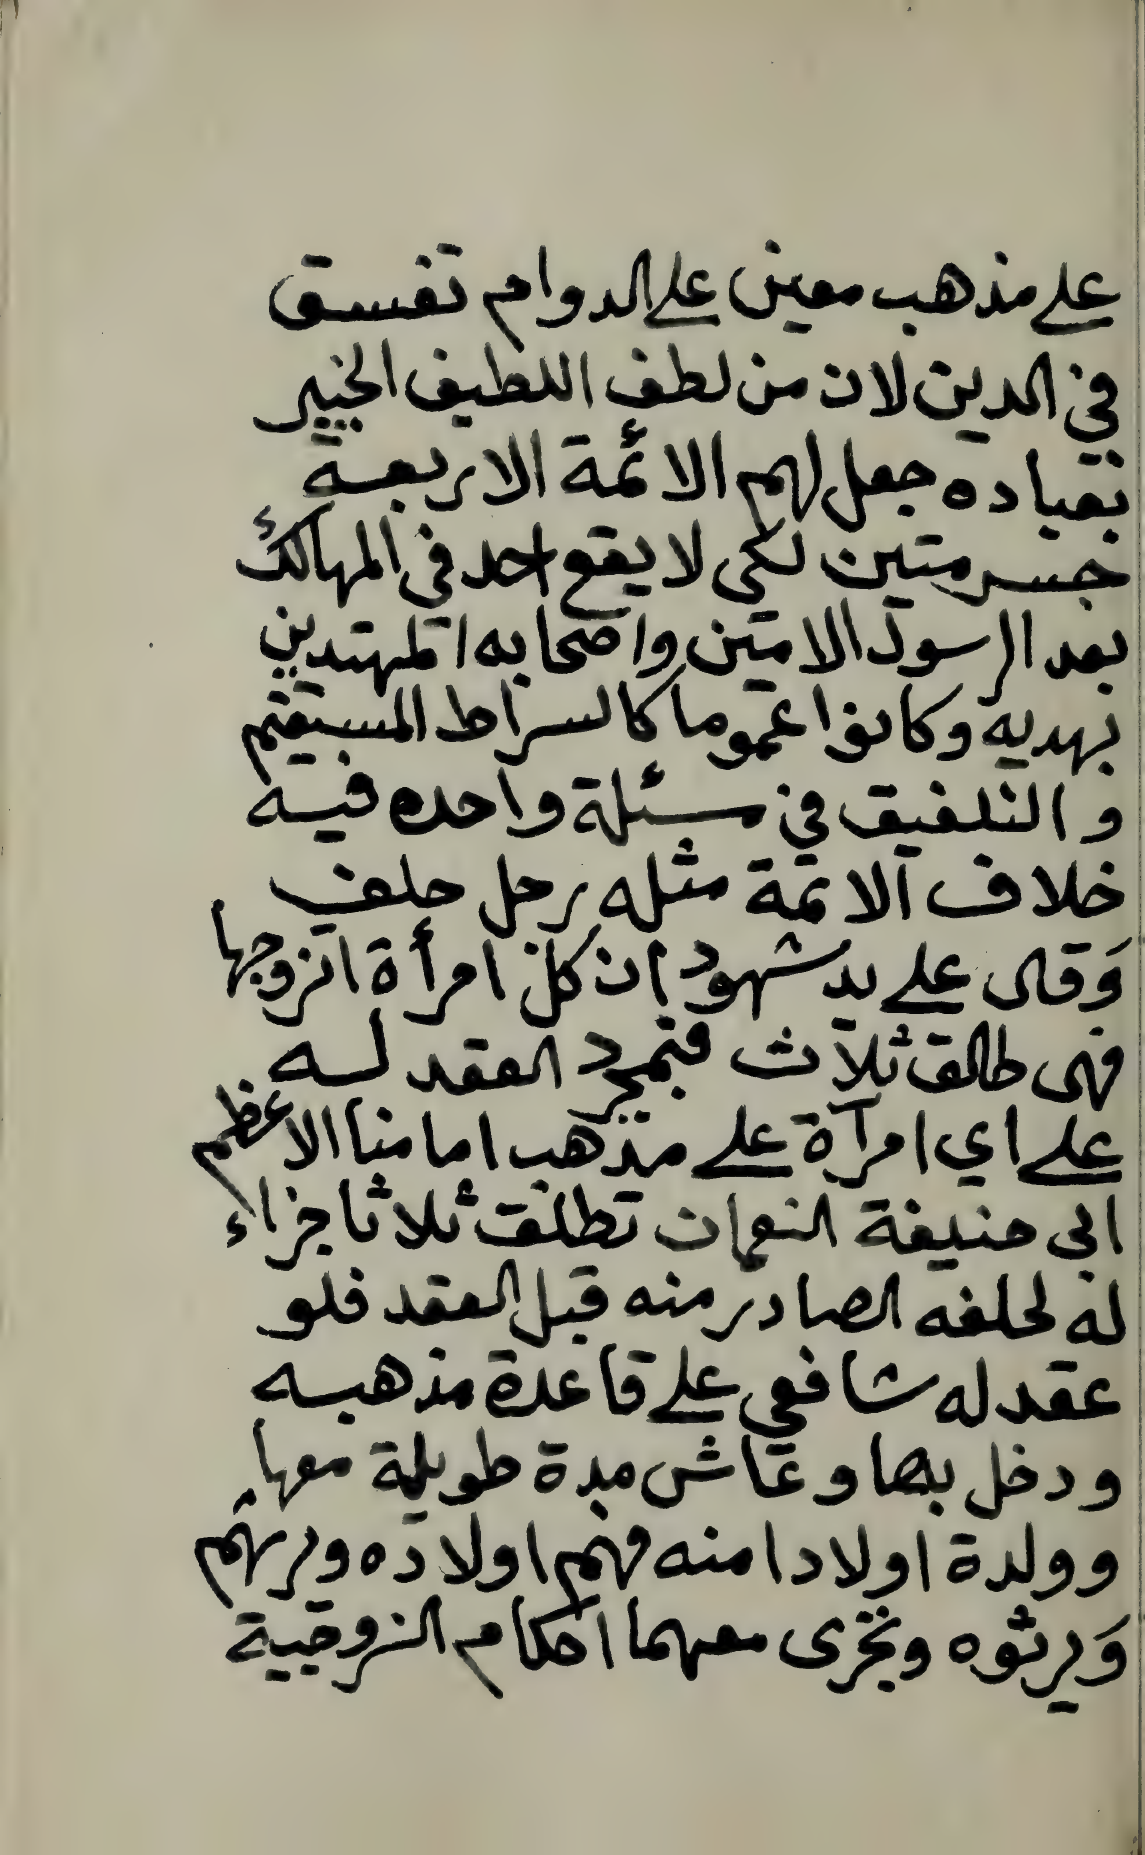 على مذهب معين على الدوام تفسق
في الدين لان من لطف اللطيف الخبير
بعباده جعل لهم الائمة الاربعة
جسر متين لكى لا يقع احد فى المهالك
بعد الرسول الامين واصحابه المهتدين
بهديه وكانوا عموما كالسراط المستقيم
والتلفيق في مسئلة واحده فيه
خلاف الائمة مثله رجل حلف
وقال على يد شهود ان كل امرأة اتزوجها
فهى طالق ثلاث فبمجرد العقد لسه
على اي امرآة على مذهب امامنا الاعظم
ابى حنيفة النعمان تطلق ثلاثا جزاء
له لحلفه الصادر منه قبل العقد فلو
عقد له شافعي على قاعدة مذهبه
ودخل بها وعاش مدة طويلة معها
وولدة اولادا منه فهم اولاده ويرثهم
ويرثوه وتجرى معهما احكام الزوجية